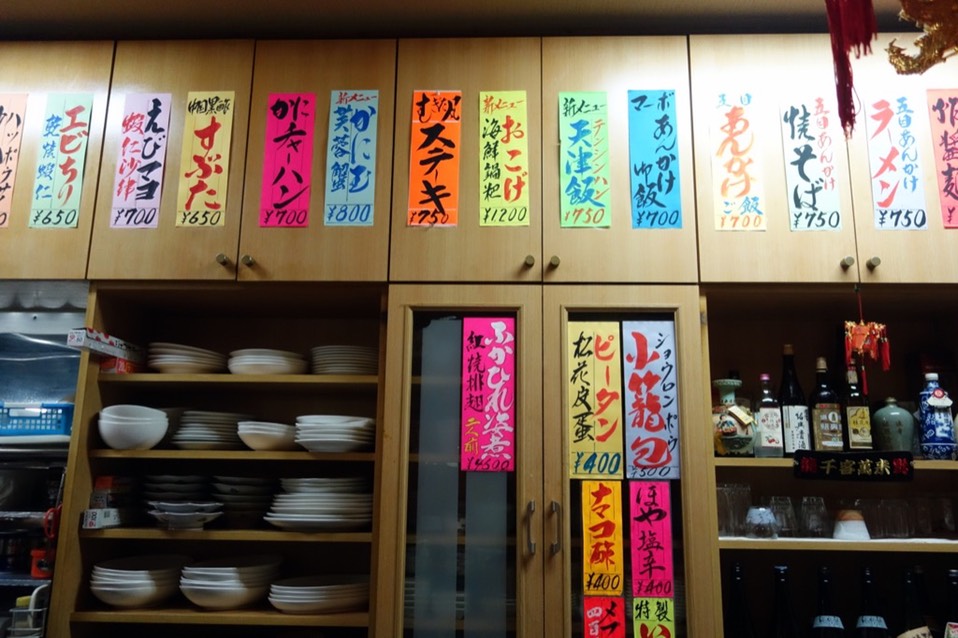 ハッポウサイ
エビちり
乾焼蝦仁
¥650
えびマヨ
蝦仁沙拌
¥700
中国黒酢
すぶた
¥650
かに
チャーハン
¥700
新メニュー
かにたま
芙蓉蟹
¥800
ステーキ
¥750
新メニュー
おこげ
海鮮鍋粑
¥1200
新メニュー
テンシンハン
天津飯
¥750
マーボ
あんかけ
¥700
五目
あんかけ
ご飯
¥700
五目あんかけ
焼そば
¥750
五目あんかけ
ラーメン
¥750
炸醤麺
ふかひれ姿煮
紅焼排翅
二人前
¥4500
ピータン
松花皮蛋
¥400
ショウロンポウ
小籠包
¥500
ナマコ酢
¥400
ほや塩辛
¥400
特製
千客萬来